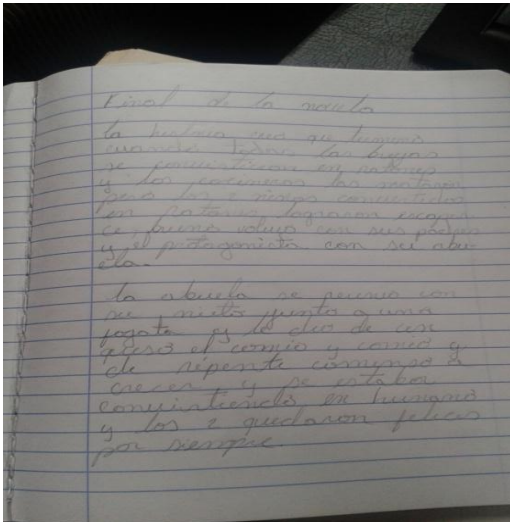 Final de la novela
la historia creo que termino
cuando todas las brujas
se convirtieron en ratones
y los cocineros las mataron
pero los niños convertidos
en ratones lograron
bruno volvio con sus padres
y el protagonista con su abu-
ela.
la abuela se reunio con
su nieto junto a una
y le dio de
queso el comio y comio y
de repente comenso a
crecer y se estaba
convirtiendo en humano
y los 2 quedaron felices
por siempre.